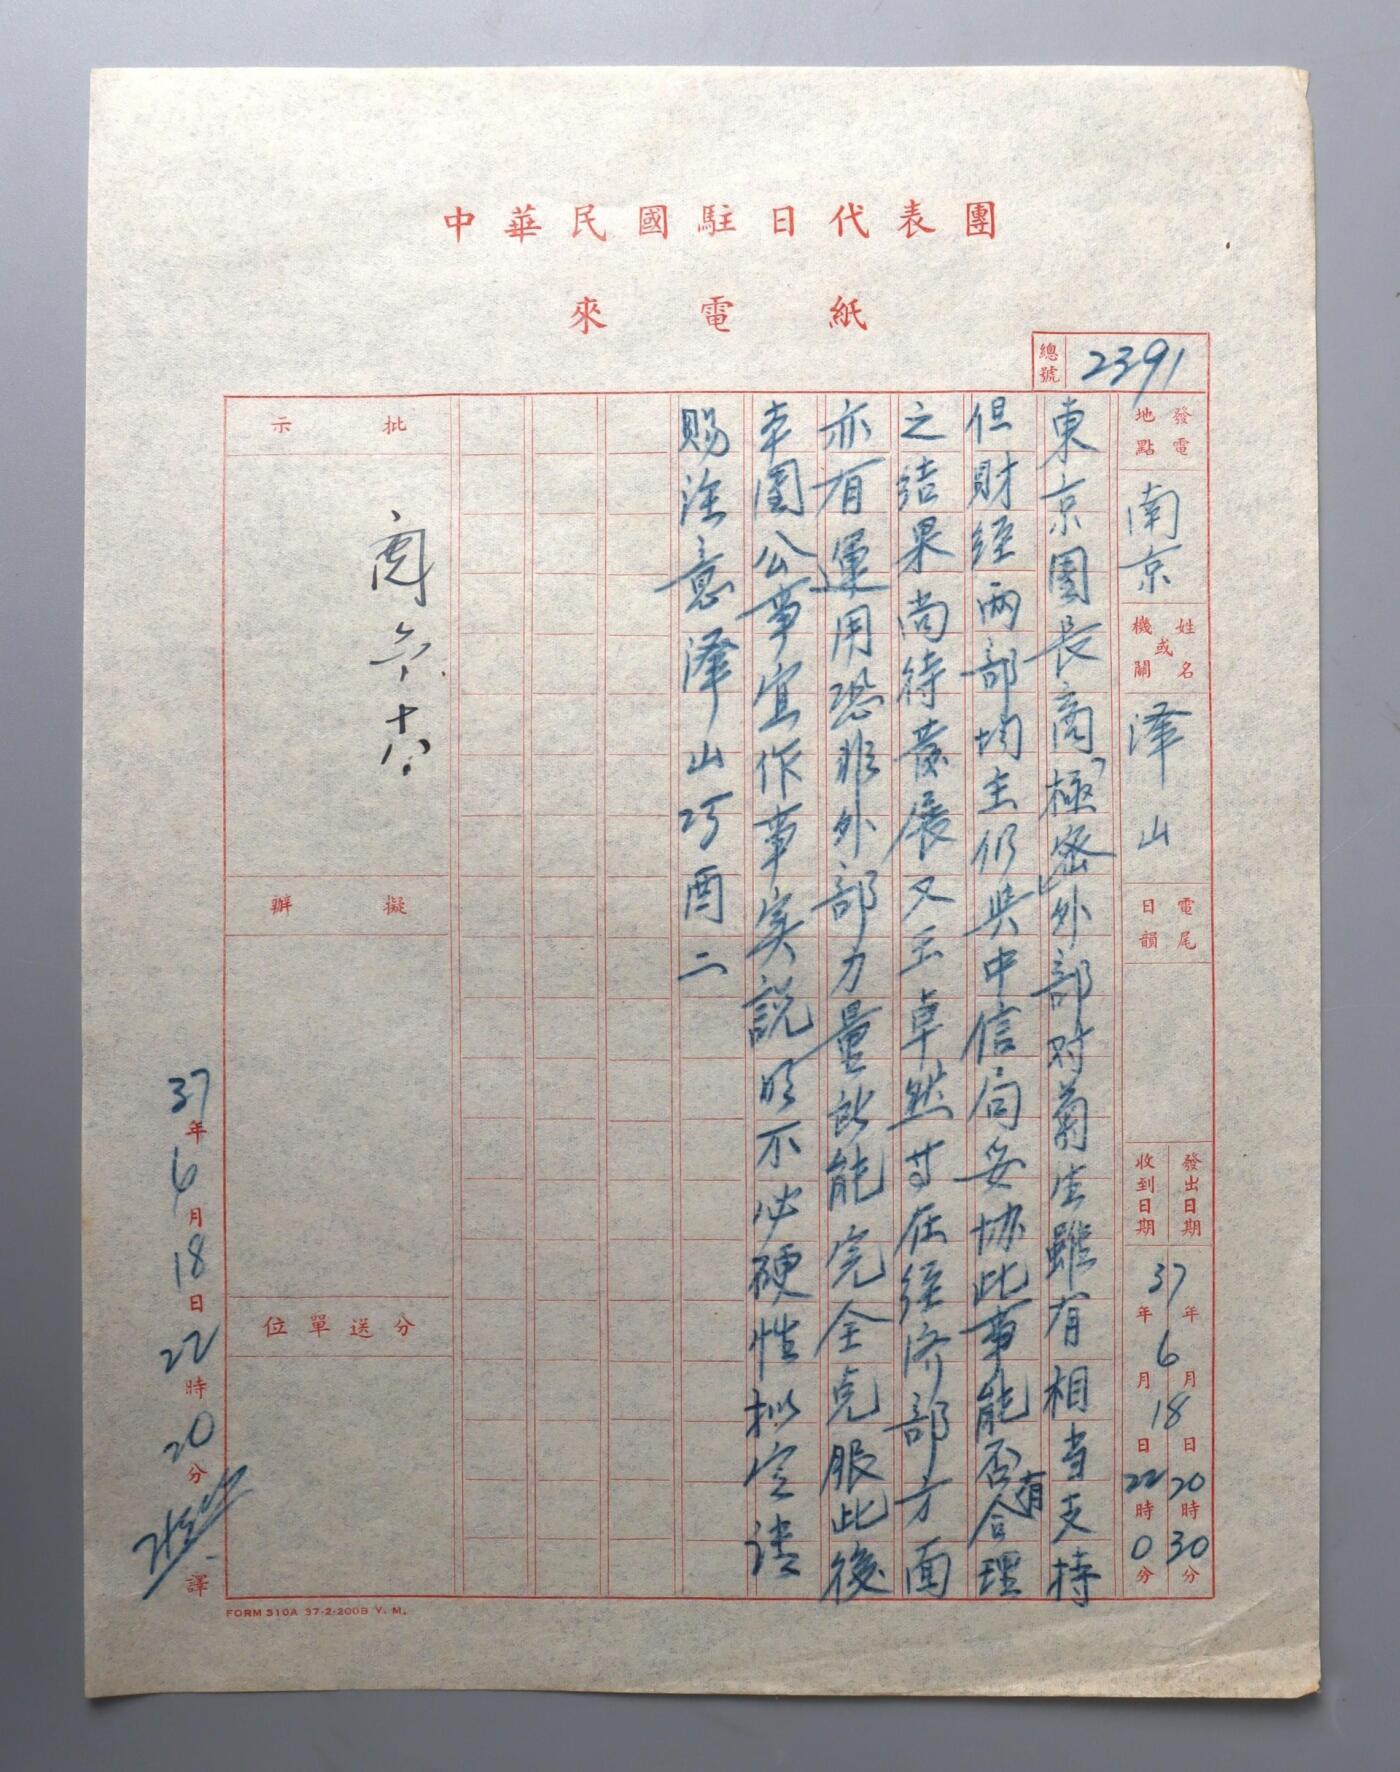 中華民國駐日代表團
來電紙
總號 2391
發電地點 南京
姓名或機關 澤山
電尾日韻
發出日期 37年6月18日20時30分
收到日期 37年6月18日22時0分
東京團長商「極密」外部对菊生雖有相当支持
但財經兩部均主仍與中信局妥协此事能否有合理
之结果尚待發展又王卓然等在经济部方面
亦有運用恐非外部力量所能完全克服此後
本團公事宜作事实説明不必硬性拟定请
賜注意澤山巧酉二
批示
商
六.
十八.
擬辦
分送單位
37年6月18日22時20分
譯
FORM 310A 37-2-200B Y. M.